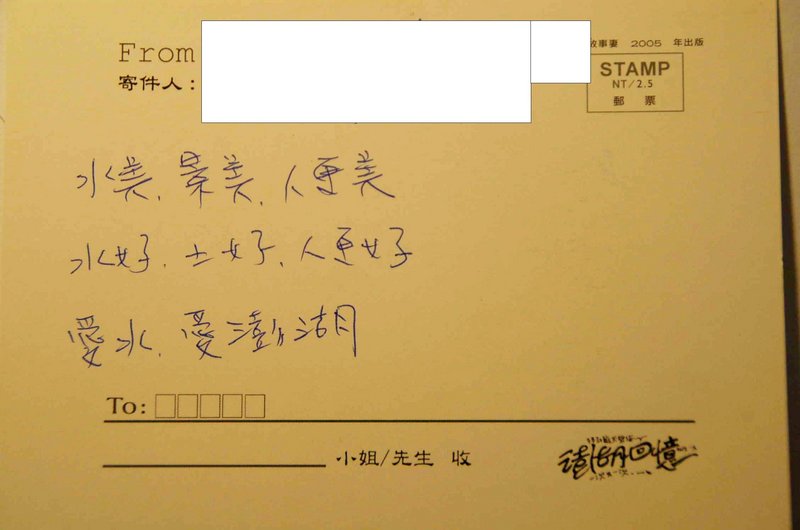 From
故事妻 2005 年出版
寄件人:
STAMP
NT/2.5
郵 票
水美、景美、人更美
水好、土好、人更好
愛水、愛澎湖
To:
小姐/先生 收
澎湖回憶